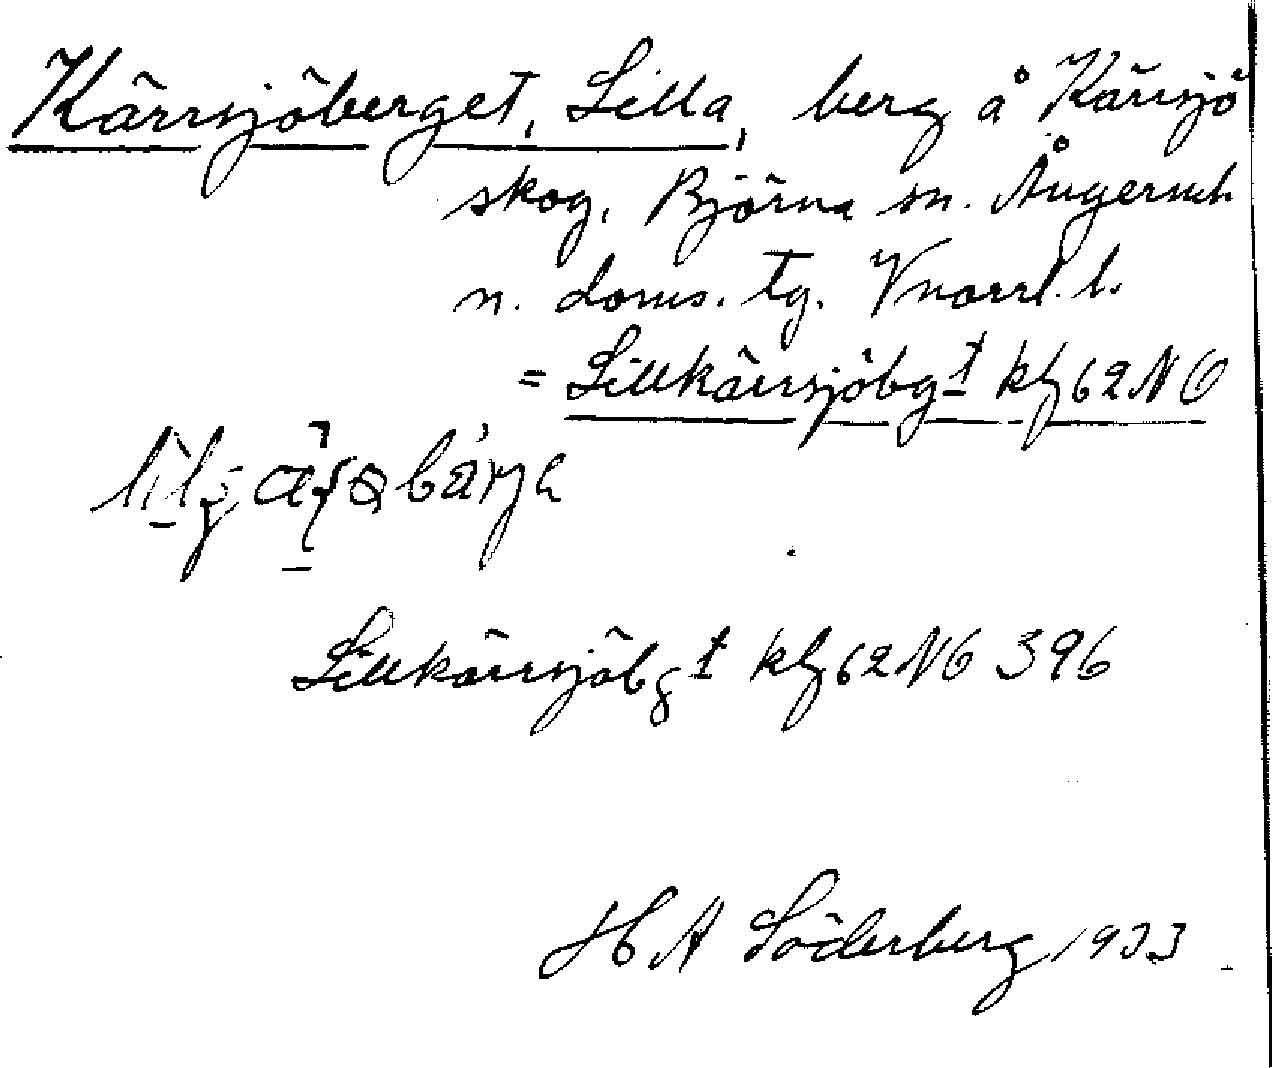 Kärrsjöberget, Lilla, berg å Kärrsjö
skog, Björna sn. Ångermch
n. doms. tg. Vnorrl. l.
= Lillkärrsjöbgt kbl 62 NO
Lillkärrsjöbgt kbl 62 NO 396
H A Söderberg 1933